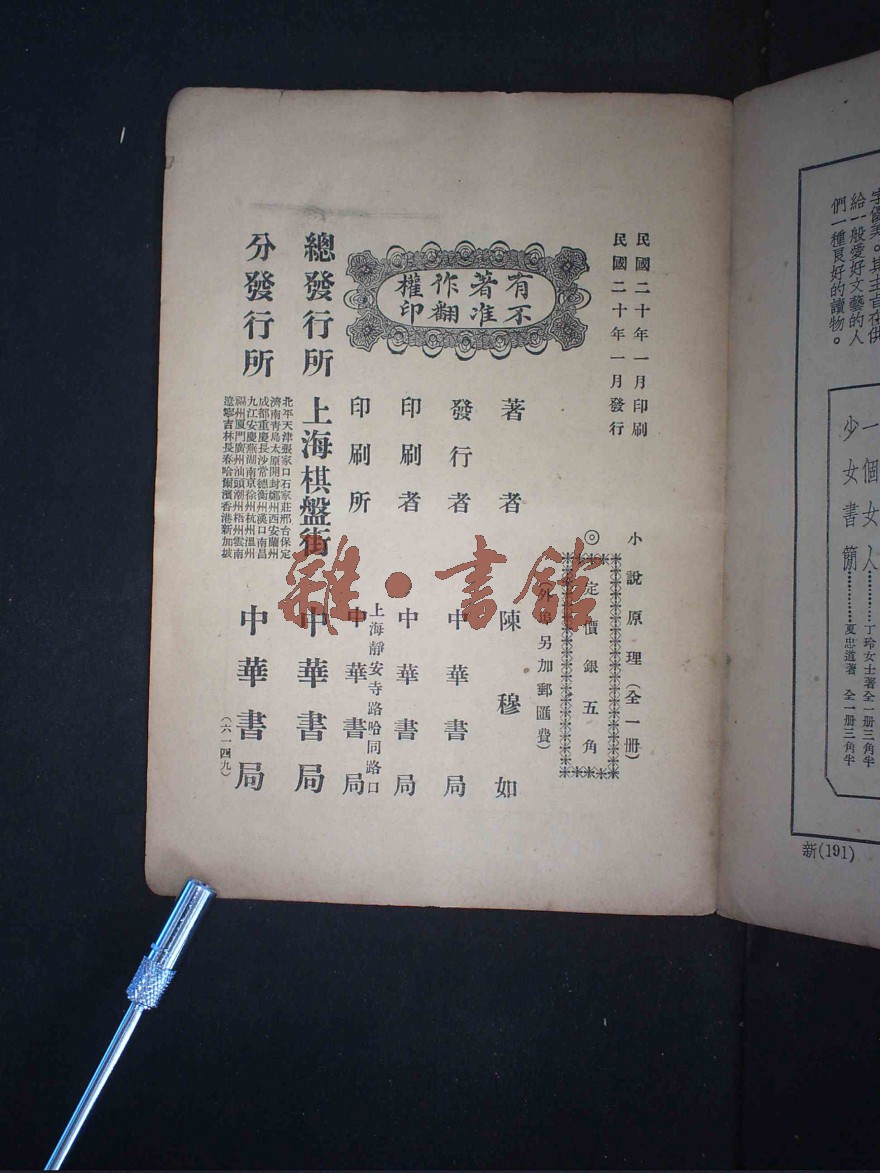 民國二十年一月印刷
民國二十年一月發行
有著作權
不准翻印
小說原理(全一册)
◎定價銀五角
外埠另加郵匯費)
著者 陳穆如
發行者 中華書局
印刷者 中華書局
上海靜安寺路哈同路口
印刷所 中華書局
總發行所 上海棋盤街 中華書局
分發行所
北平天津張家口石家莊邢台保定
濟南青島太原開封鄭州西安蘭州
成都重慶長沙常德衡州漢口南昌
九江安慶蕪湖南京徐州杭州溫州
福州廈門廣州汕頭潮州梧州雲南
遼寧吉林長春哈爾濱香港新加坡
中華書局
(六一四九)
雜·書館
字優美。其主旨在供
給一般愛好文藝的人
們一種良好的讀物。
一個女人…………丁玲女士著 全一册三角半
少女書簡…………夏忠道著 全一册三角半
新(191)